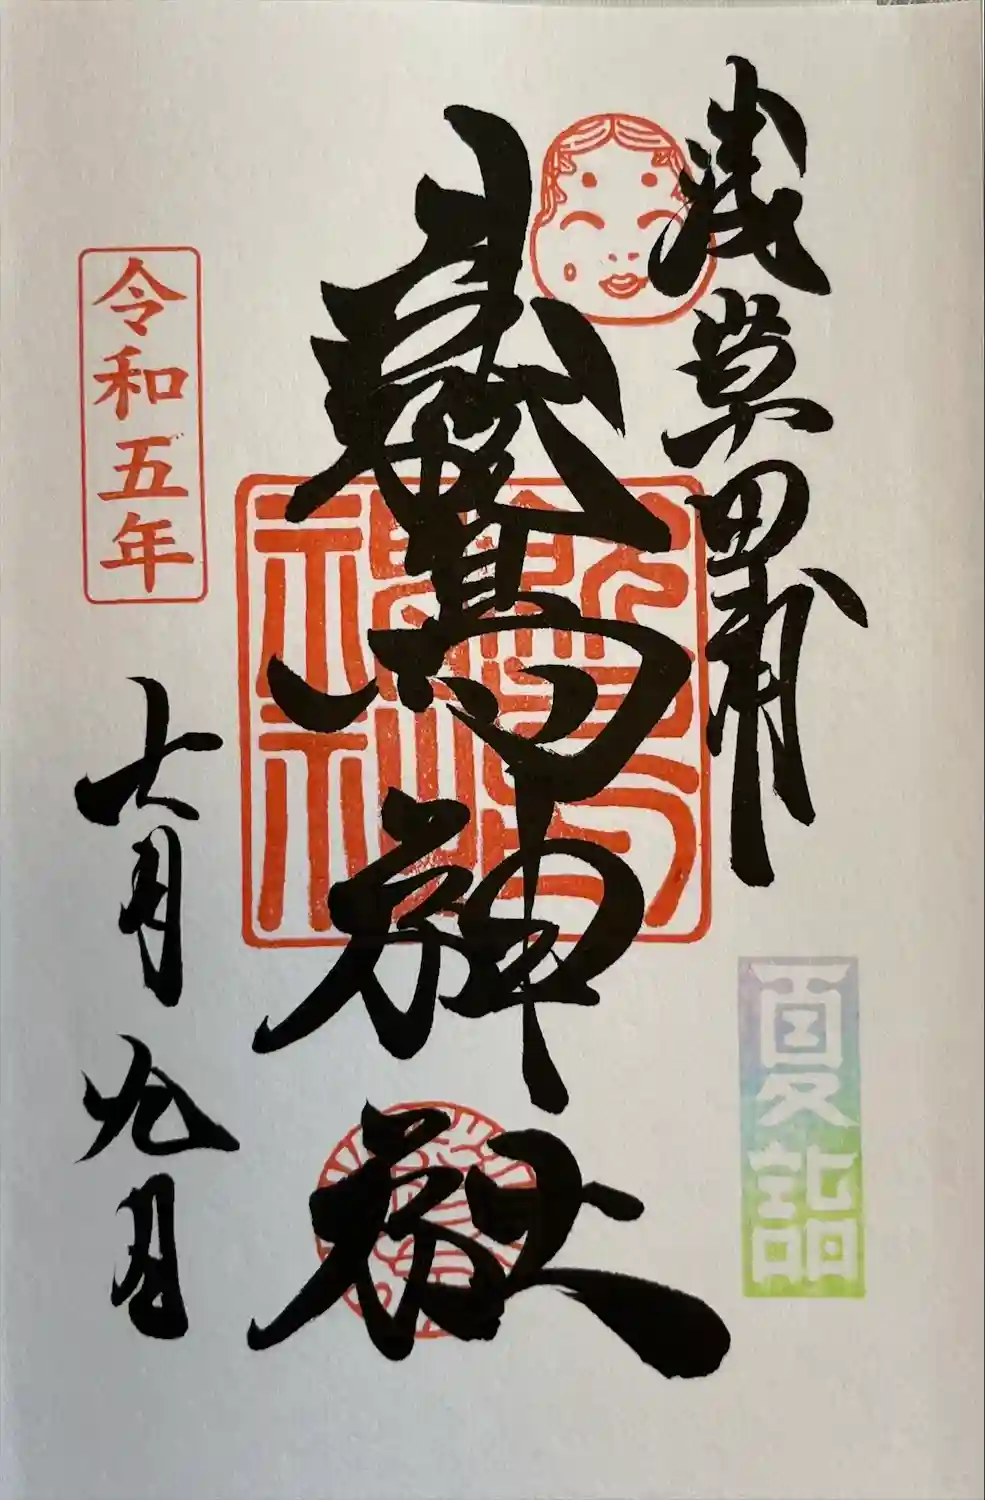 浅草田甫
夏詣
鷲神社
鷲神社
令和五年
七月九日